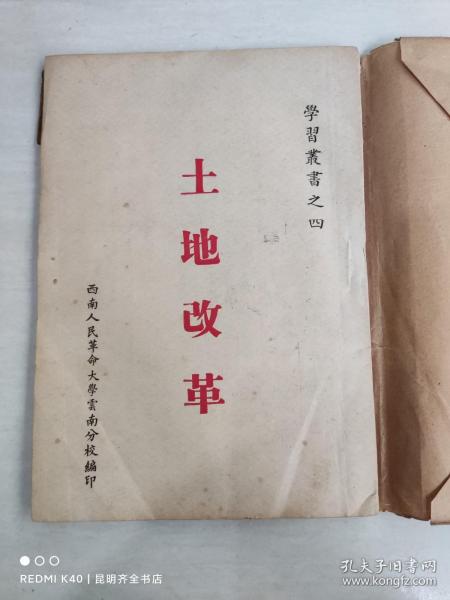 學習叢書之四
土地改革
西南人民革命大學雲南分校編印
REDMI K40 | 昆明齐全书店
孔夫子旧书网
www.kongfz.com